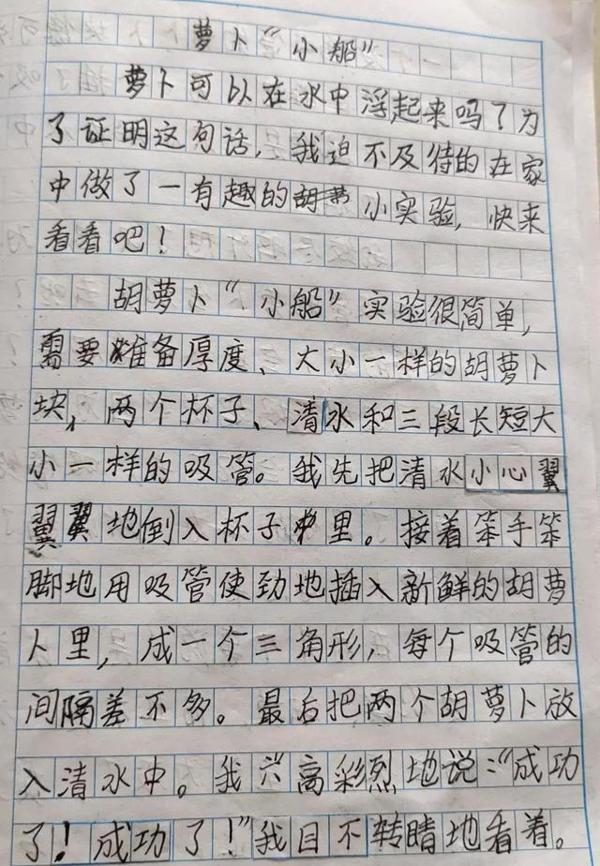 萝卜“小船”
萝卜可以在水中浮起来吗？为
了证明这句话，我迫不及待的在家
中做了一有趣的小实验，快来
看看吧！
胡萝卜“小船”实验很简单，
需要准备厚度、大小一样的胡萝卜
块，两个杯子、清水和三段长短大
小一样的吸管。我先把清水小心翼
翼翼地倒入杯子里。接着笨手笨
脚地用吸管使劲地插入新鲜的胡萝
卜里，成一个三角形，每个吸管的
间隔差不多。最后把两个胡萝卜放
入清水中。我兴高彩烈地说：“成功
了！成功了！”我目不转睛地看着。